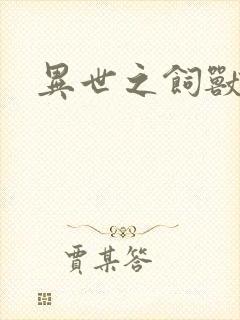 異世之飼獸
賈某答